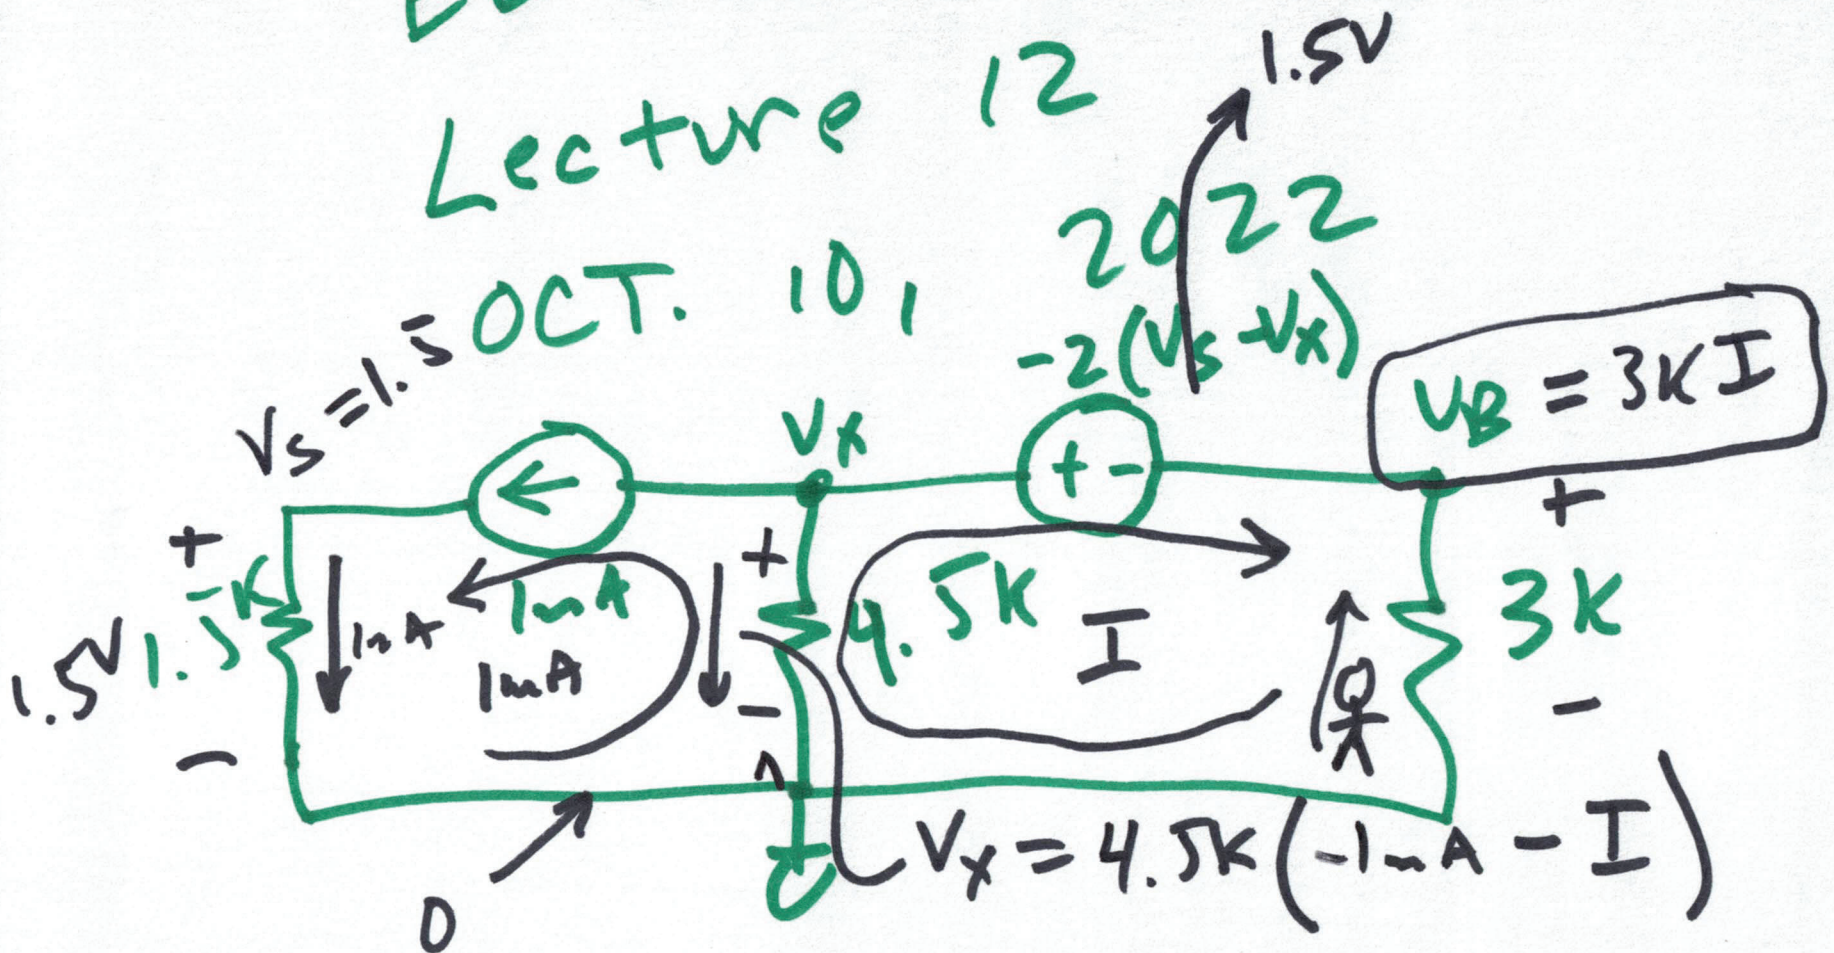 Lecture 12
1.5V
OCT. 10, 2022
Vs = 1.5
-2(Vs-Vx)
VB = 3K I
Vx
+ -
+
1.5K
1.5V
-
1mA
1mA
1mA
+
-
4.5K
I
+
3K
-
0
Vx = 4.5K(-1mA - I)